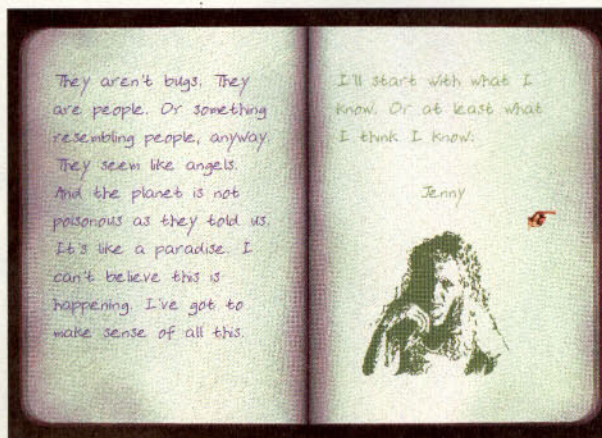 They aren't bugs. They
are people. Or something
resembling people, anyway.
They seem like angels.
And the planet is not
poisonous as they told us.
It's like a paradise. I
can't believe this is
happening. I've got to
make sense of all this.
I'll start with what I
know. Or at least what
I think I know.
Jenny